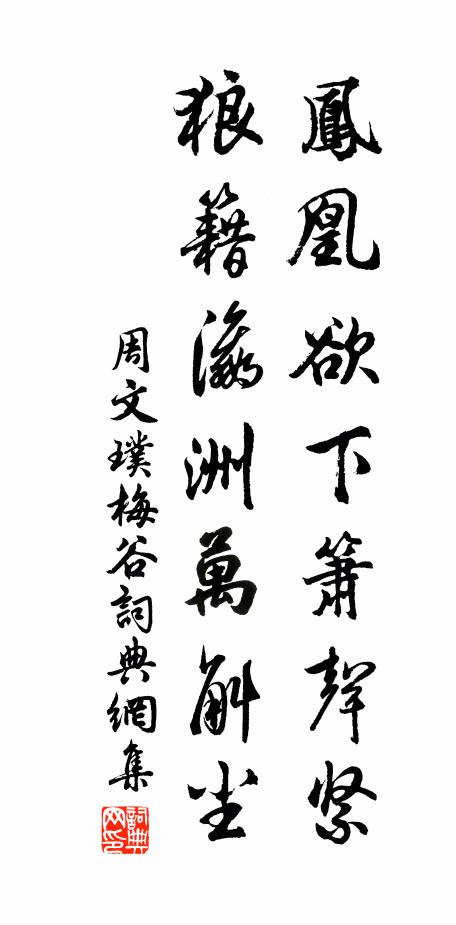 鳳凰欲下簫聲緊
狼籍瀛洲萬斛尘
周文璞梅谷詞典網集
詞典网印